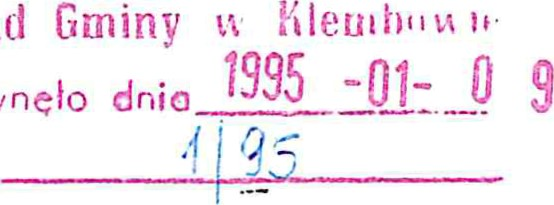 d Gminy w Klembowie
ynęło dnia 1995 -01- 0 9
1/95